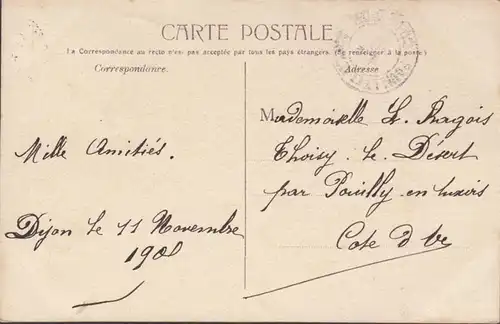 CARTE POSTALE
La Correspondance au recto n'est pas acceptée par tous les pays étrangers. (Se renseigner à la poste)
Correspondance.
Adresse
Mademoiselle L. Ragois
Thoisy. le. Désert
par Pouilly en auxois
Cote d'Or
Mille Amitiés.
Dijon le 11 Novembre
1901